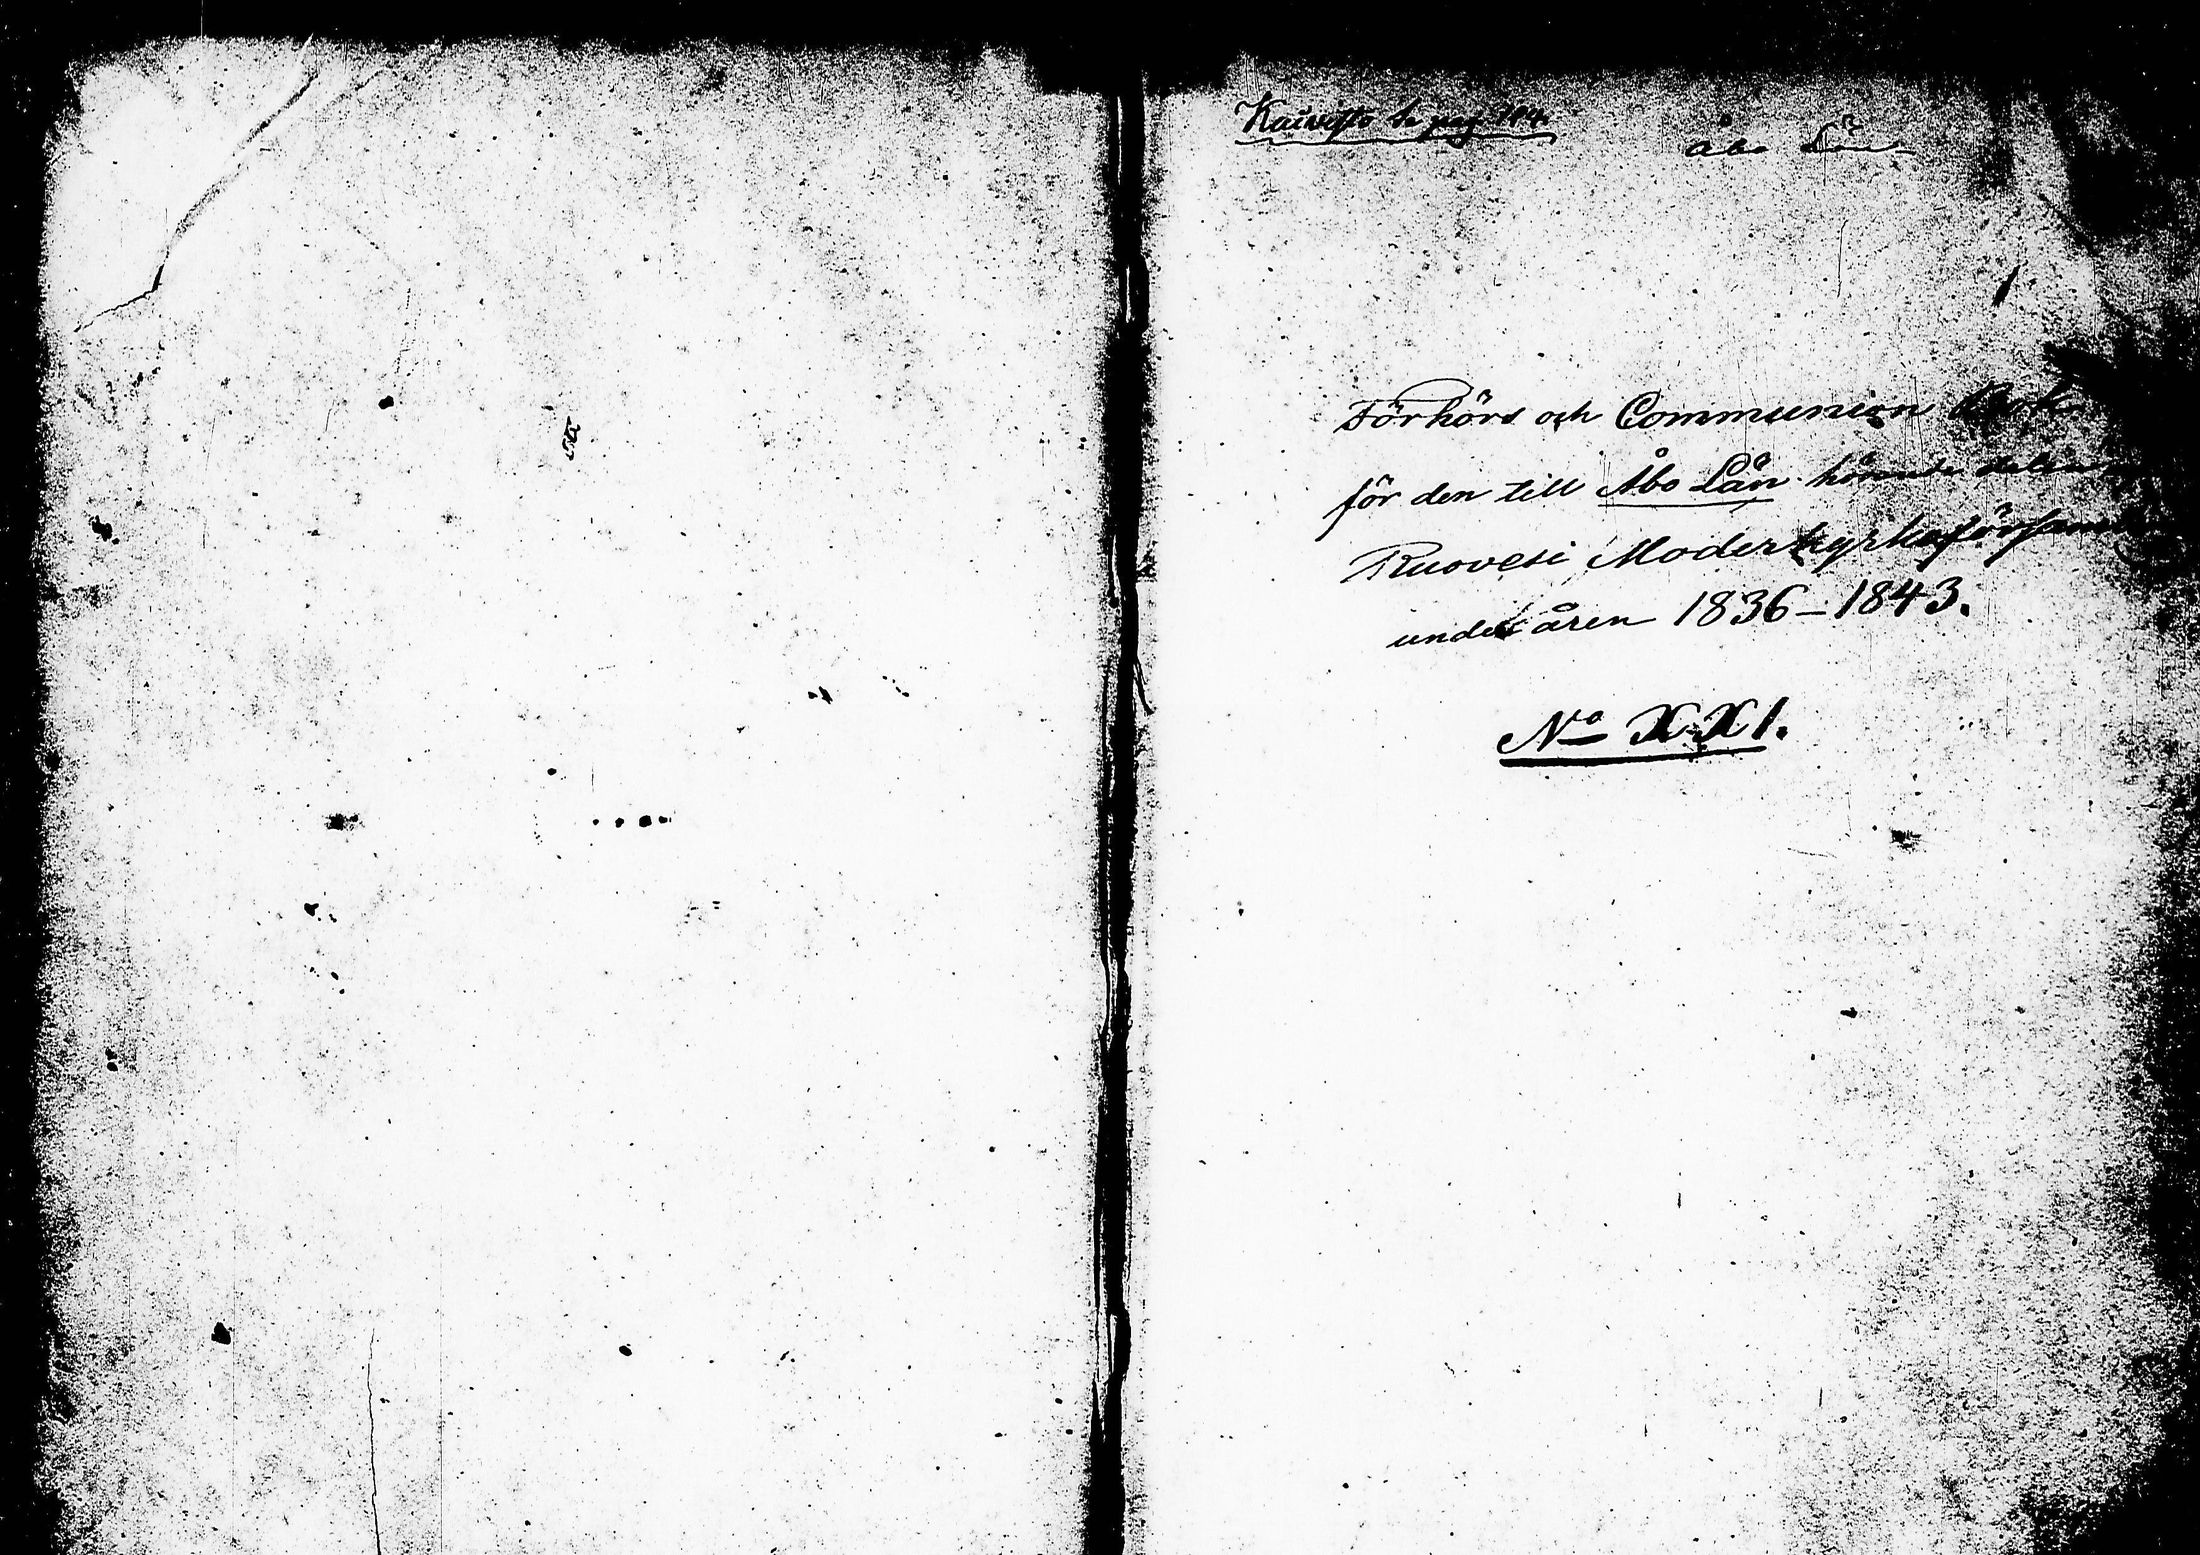 Kaivisto se pag. 184.
Åbo Län
Förhörs och Communion Bok
för den till Åbo Län hörande delen
Ruovesi Moderkyrkoförsaml
under åren 1836–1843.
No XXI.